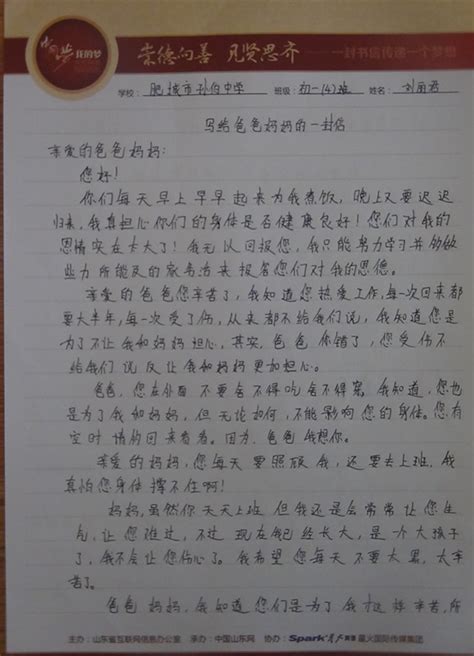 中国梦 我的梦
崇德向善 见贤思齐 一封书信传递一个梦想
学校: 肥城市孙伯中学 班级: 初一(4)班 姓名: 刘丽君
写给爸爸妈妈的一封信
亲爱的爸爸妈妈:
您好!
你们每天早上早早起来为我煮饭,晚上又要迟迟
归来,我真担心你们的身体是否健康良好!您们对我的
恩情实在太大了!我无以回报您,我只能努力学习并多做
些力所能及的家务活来报答您们对我的恩德。
亲爱的爸爸您辛苦了,我知道您热爱工作,每一次回来都
要大半年,每一次受了伤,从来都不给我们说,我知道您是
为了不让我和妈妈担心,其实,爸爸,你错了,您受伤不
给我们说反让我和妈妈更加担心。
爸爸,您在外面不要舍不得吃舍不得穿,我知道,您也
是为了我和妈妈,但无论如何,不能影响您的身体。您有
空时请约回来看看。因为,爸爸我想你。
亲爱的妈妈,您每天要照顾我,还要去上班,我
真怕您身体撑不住啊!
妈妈,虽然你天天上班但我还是会常常让您生
气,让您难过,不过现在我已经长大,是个大孩子
了,我不会让您伤心了。我希望您每天不要太累,太辛
苦了。
爸爸妈妈,我知道您们是为了我才这样辛苦,所
主办:山东省互联网信息办公室 承办:中国山东网 协办:Spark星火教育 星火国际传媒集团